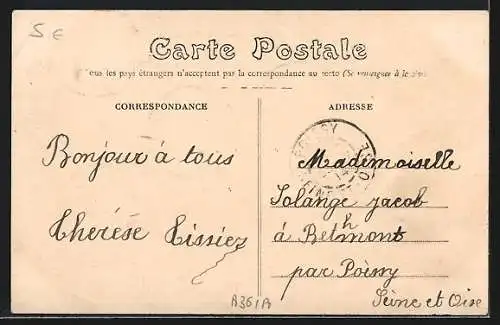 5 €
Carte Postale
Tous les pays étrangers n'acceptent par la correspondance au recto (Se renseigner à la
CORRESPONDANCE
Bonjour à tous
Thérèse Tissier
ADRESSE
Mademoiselle
Solange Jacob
à Bethmont
par Poissy
Seine et Oise
A361A